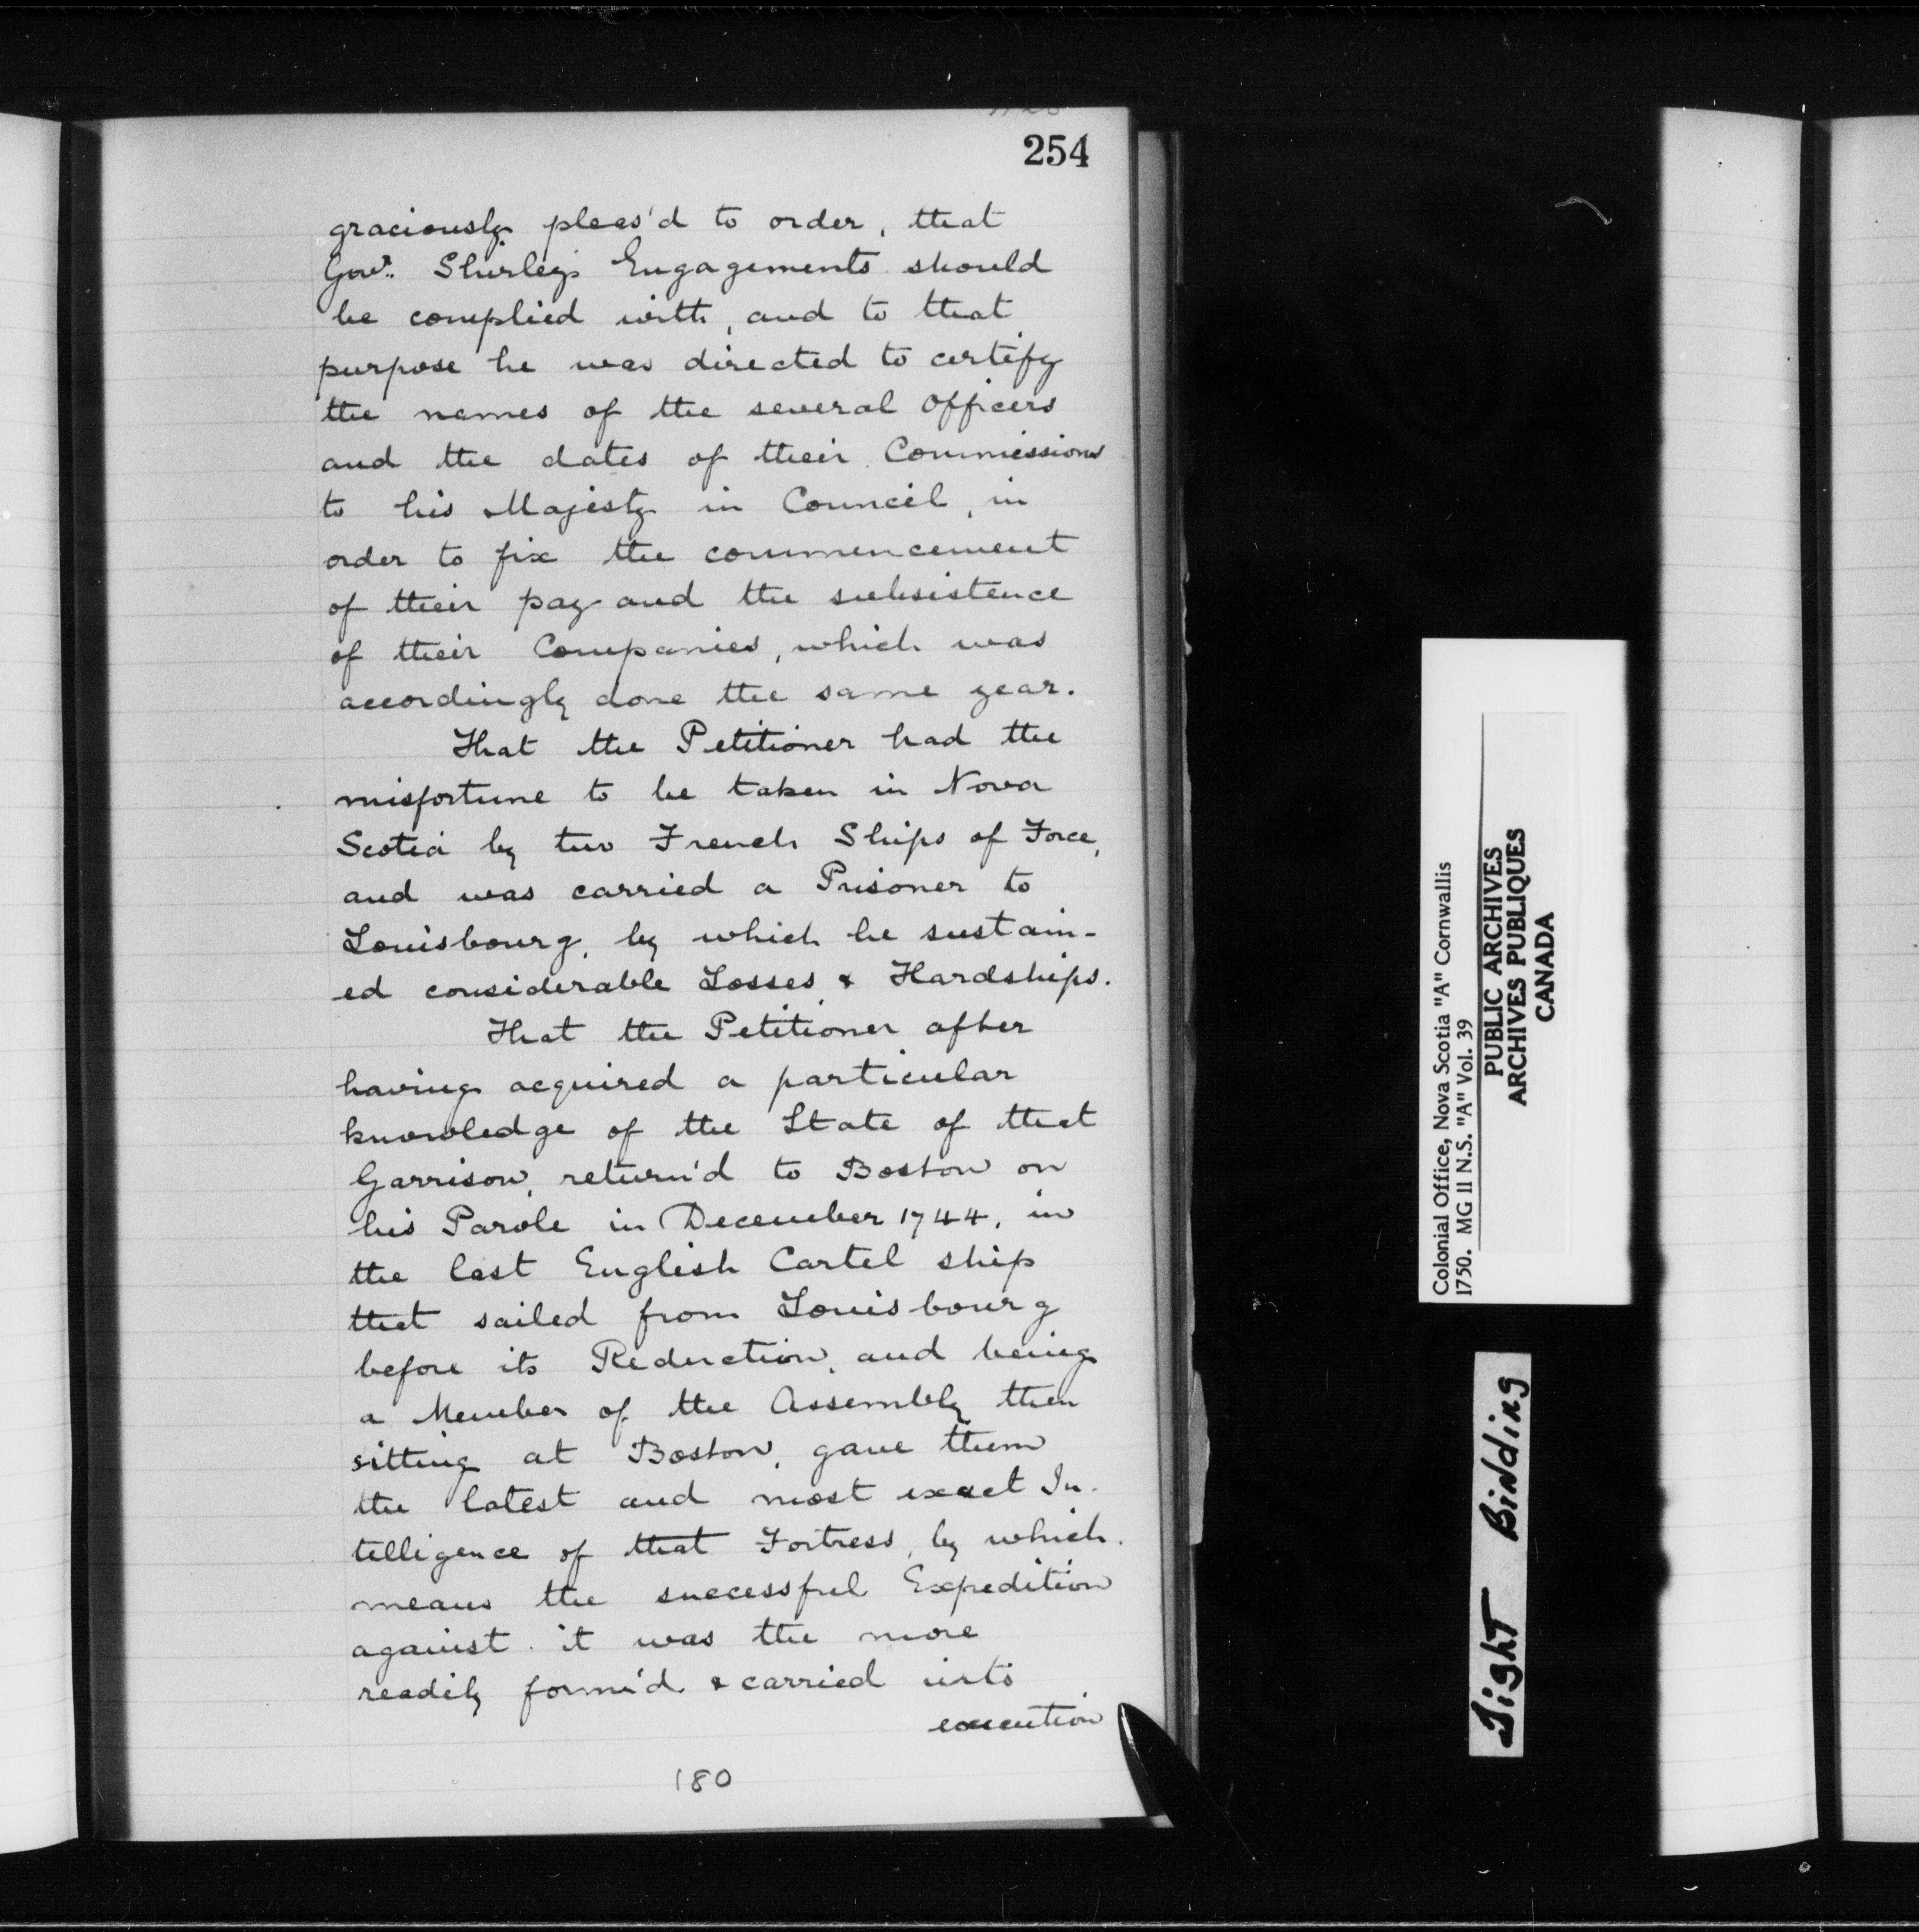 254
graciously pleas'd to order, that
Govr. Shirley's Engagements should
be complied with, and to that
purpose he was directed to certify
the names of the several Officers
and the dates of their Commissions
to his Majesty in Council, in
order to fix the commencement
of their pay and the subsistence
of their Companies, which was
accordingly done the same year.
That the Petitioner had the
misfortune to be taken in Nova
Scotia by two French Ships of Force,
and was carried a Prisoner to
Louisbourg, by which he sustain-
ed considerable Losses & Hardships.
That the Petitioner after
having acquired a particular
knowledge of the State of that
Garrison, return'd to Boston on
his Parole in December 1744, in
the last English Cartel ship
that sailed from Louisbourg
before its Reduction, and being
a Member of the Assembly then
sitting at Boston, gave them
the latest and most exact In-
telligence of that Fortress, by which
means the successful Expedition
against it was the more
readily form'd & carried into
execution
180
Colonial Office, Nova Scotia "A" Cornwallis
1750. MG 11 N.S. "A" Vol. 39
PUBLIC ARCHIVES
ARCHIVES PUBLIQUES
CANADA
Tight Binding